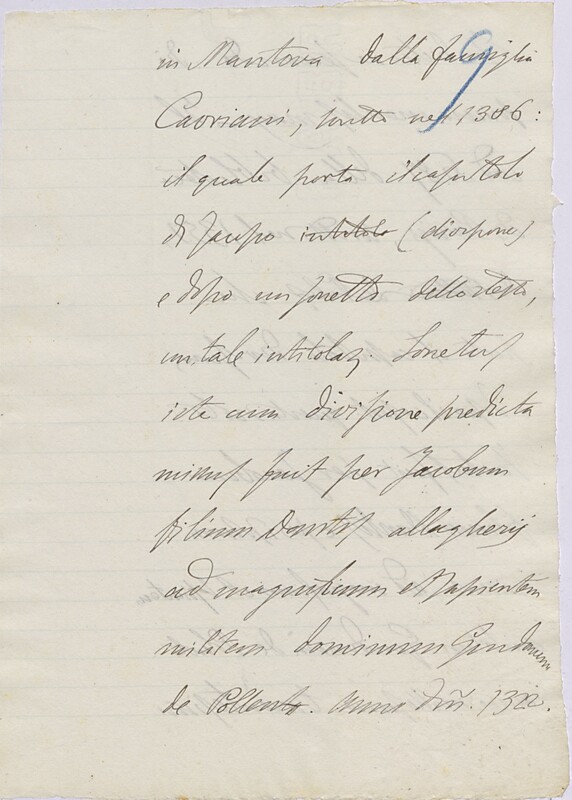 9
in Mantova dalla famiglia
Cavriani, scritto nel 1386:
il quale porta il capitolo
di Jacopo intitolo (divisione)
e dopo un sonetto dello stesso,
un tale intitolaz. Sonetus
iste cum divisione predicta
missus fuit per Jacobum
filium Dantis allagherij
ad magnificum et sapientem
militem dominum Guidonem
de Pollenta. Anno dñi. 1322.